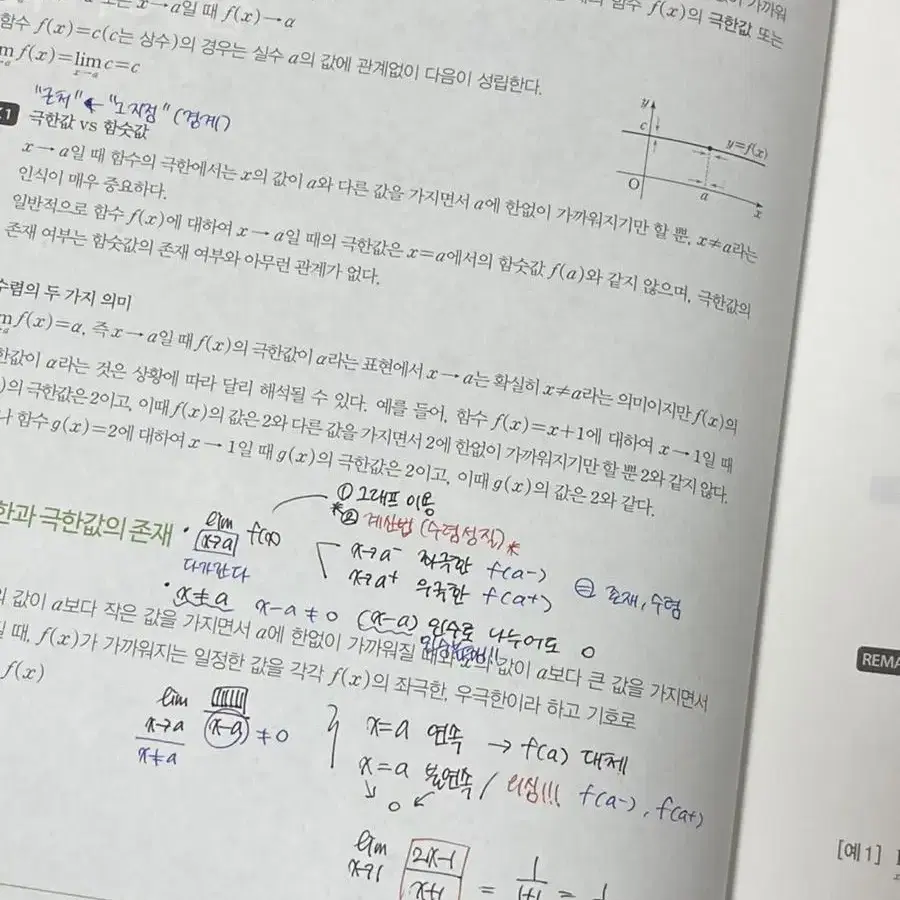 x→a일 때 f(x)→α
함수 f(x)의 극한값 또는
함수 f(x)=c(c는 상수)의 경우는 실수 a의 값에 관계없이 다음이 성립한다.
f(x)=lim c=c
x→a
"근처" ← "노 지점" (경계)
극한값 vs 함숫값
y
c
y=f(x)
O
a
x
x→a일 때 함수의 극한에서는 x의 값이 a와 다른 값을 가지면서 a에 한없이 가까워지기만 할 뿐, x≠a라는
인식이 매우 중요하다.
일반적으로 함수 f(x)에 대하여 x→a일 때의 극한값은 x=a에서의 함숫값 f(a)와 같지 않으며, 극한값의
존재 여부는 함숫값의 존재 여부와 아무런 관계가 없다.
수렴의 두 가지 의미
f(x)=α, 즉 x→a일 때 f(x)의 극한값이 α라는 표현에서 x→a는 확실히 x≠a라는 의미이지만 f(x)의
극한값이 α라는 것은 상황에 따라 달리 해석될 수 있다. 예를 들어, 함수 f(x)=x+1에 대하여 x→1일 때
의 극한값은 2이고, 이때 f(x)의 값은 2와 다른 값을 가지면서 2에 한없이 가까워지기만 할 뿐 2와 같지 않다.
함수 g(x)=2에 대하여 x→1일 때 g(x)의 극한값은 2이고, 이때 g(x)의 값은 2와 같다.
한과 극한값의 존재
• lim f(x)
x→a
다가간다
① 그래프 이용
*② 계산법 (수렴성질)*
x→a- 좌극한 f(a-)
x→a+ 우극한 f(a+)
존재, 수렴
• x≠a x-a≠0 (x-a) 인수로 나누어도 0
값이 a보다 작은 값을 가지면서 a에 한없이 가까워질 때와 x의 값이 a보다 큰 값을 가지면서
때, f(x)가 가까워지는 일정한 값을 각각 f(x)의 좌극한, 우극한이라 하고 기호로
f(x)
lim
x→a
x-a ≠0
x≠a
x=a 연속 → f(a) 대체
x=a 불연속 / 의심!!! f(a-), f(a+)
0
REMA
[예 1]
lim 2x-1
x→1 x+1
= 1
1+1
=